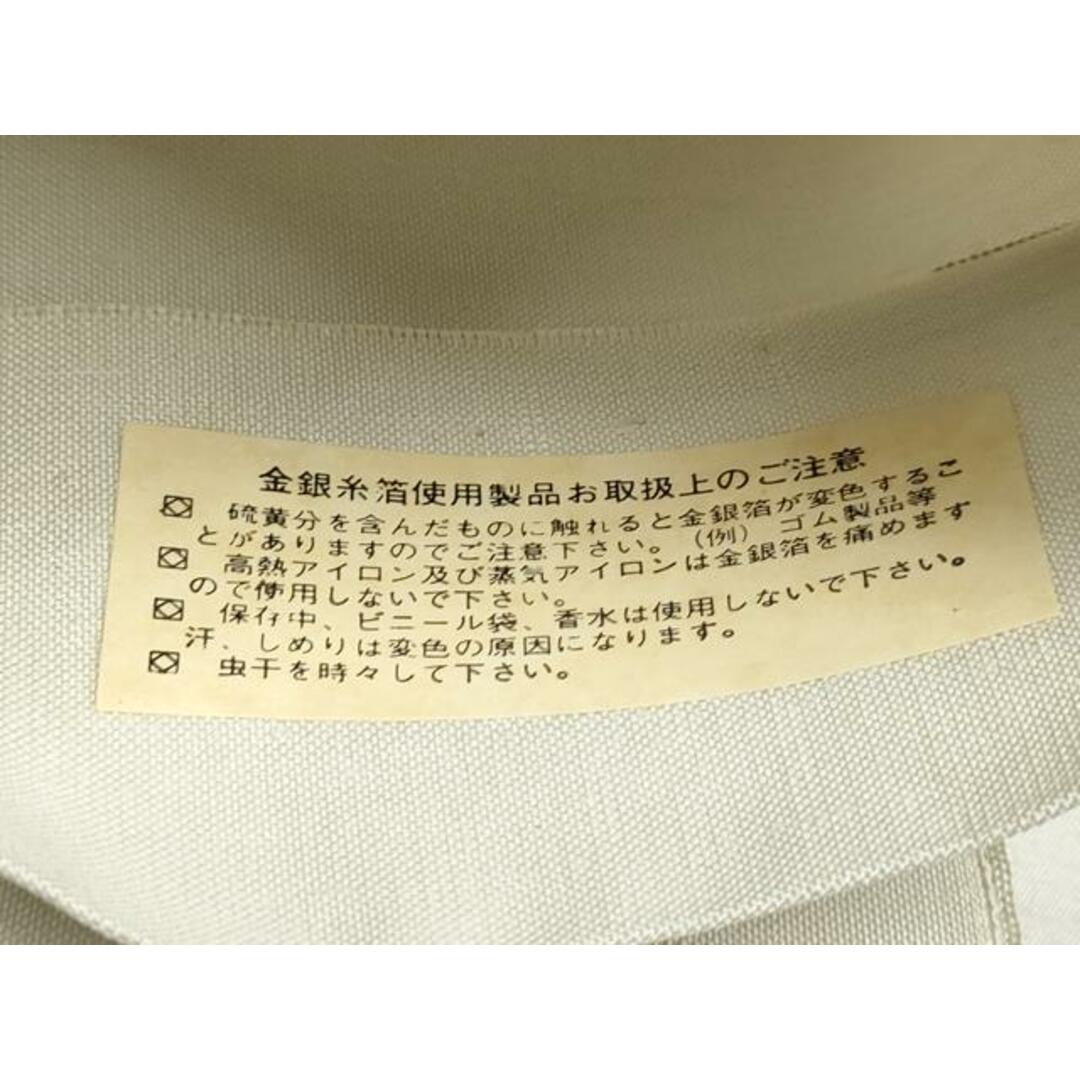 金銀糸箔使用製品お取扱上のご注意
硫黄分を含んだものに触れると金銀箔が変色するこ
とがありますのでご注意下さい。（例）ゴム製品等
高熱アイロン及び蒸気アイロンは金銀箔を痛めます
ので使用しないで下さい。
保存中、ビニール袋、香水は使用しないで下さい。
汗、しめりは変色の原因になります。
虫干を時々して下さい。